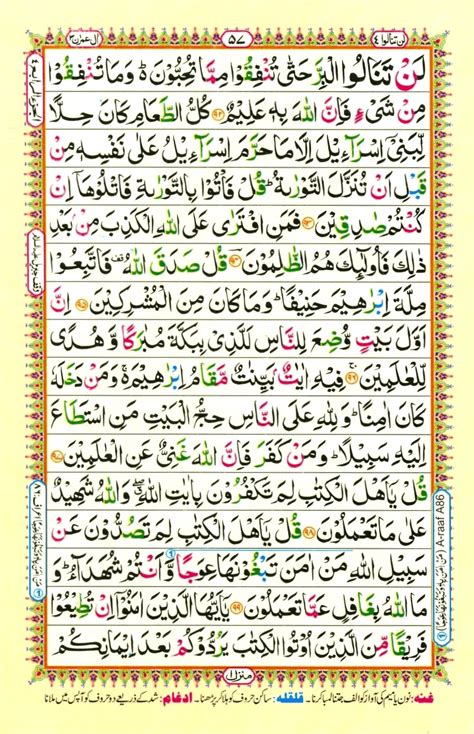 لن تنالوا ٤
٥٧
ال عمرٰن ٣
لَنۡ تَنَالُوا الۡبِرَّ حَتّٰى تُنۡفِقُوۡا مِمَّا تُحِبُّوۡنَ ؕ وَمَا تُنۡفِقُوۡا
مِنۡ شَىۡءٍ فَاِنَّ اللّٰهَ بِهٖ عَلِيۡمٌ ﴿۹۲﴾ كُلُّ الطَّعَامِ كَانَ حِلًّا
لِّبَنِىۡۤ اِسۡرَآءِيۡلَ اِلَّا مَا حَرَّمَ اِسۡرَآءِيۡلُ عَلٰى نَفۡسِهٖ مِنۡ
قَبۡلِ اَنۡ تُنَزَّلَ التَّوۡرٰٮةُ ؕ قُلۡ فَاۡتُوۡا بِالتَّوۡرٰٮةِ فَاتۡلُوۡهَاۤ اِنۡ
كُنۡتُمۡ صٰدِقِيۡنَ ﴿۹۳﴾ فَمَنِ افۡتَرٰى عَلَى اللّٰهِ الۡكَذِبَ مِنۡۢ بَعۡدِ
ذٰلِكَ فَاُولٰٓٮِٕكَ هُمُ الظّٰلِمُوۡنَ ﴿۹۴﴾ قُلۡ صَدَقَ اللّٰهُ فَاتَّبِعُوۡا
مِلَّةَ اِبۡرٰهِيۡمَ حَنِيۡفًا ؕ وَمَا كَانَ مِنَ الۡمُشۡرِكِيۡنَ ﴿۹۵﴾ اِنَّ
اَوَّلَ بَيۡتٍ وُّضِعَ لِلنَّاسِ لَلَّذِىۡ بِبَكَّةَ مُبٰرَكًا وَّهُدًى
لِّلۡعٰلَمِيۡنَ ﴿۹۶﴾ فِيۡهِ اٰيٰتٌۢ بَيِّنٰتٌ مَّقَامُ اِبۡرٰهِيۡمَ ۚ وَمَنۡ دَخَلَهٗ
كَانَ اٰمِنًا ؕ وَلِلّٰهِ عَلَى النَّاسِ حِجُّ الۡبَيۡتِ مَنِ اسۡتَطَاعَ
اِلَيۡهِ سَبِيۡلًا ؕ وَمَنۡ كَفَرَ فَاِنَّ اللّٰهَ غَنِىٌّ عَنِ الۡعٰلَمِيۡنَ ﴿۹۷﴾
قُلۡ يٰۤاَهۡلَ الۡكِتٰبِ لِمَ تَكۡفُرُوۡنَ بِاٰيٰتِ اللّٰهِ ۖ وَاللّٰهُ شَهِيۡدٌ
عَلٰى مَا تَعۡمَلُوۡنَ ﴿۹۸﴾ قُلۡ يٰۤاَهۡلَ الۡكِتٰبِ لِمَ تَصُدُّوۡنَ عَنۡ
سَبِيۡلِ اللّٰهِ مَنۡ اٰمَنَ تَبۡغُوۡنَهَا عِوَجًا وَّاَنۡتُمۡ شُهَدَآءُ ؕ وَ
مَا اللّٰهُ بِغَافِلٍ عَمَّا تَعۡمَلُوۡنَ ﴿۹۹﴾ يٰۤاَيُّهَا الَّذِيۡنَ اٰمَنُوۡۤا اِنۡ تُطِيۡعُوۡا
فَرِيۡقًا مِّنَ الَّذِيۡنَ اُوۡتُوا الۡكِتٰبَ يَرُدُّوۡكُمۡ بَعۡدَ اِيۡمَانِكُمۡ
A-raaf A86
منزل ۱
غنه: نون یا میم کی آواز کو الف جتنا لمبا کرنا۔ قلقله: ساکن حروف کو ہلا کر پڑھنا۔ ادغام: شد کے ذریعے دو حروف کو آپس میں ملانا